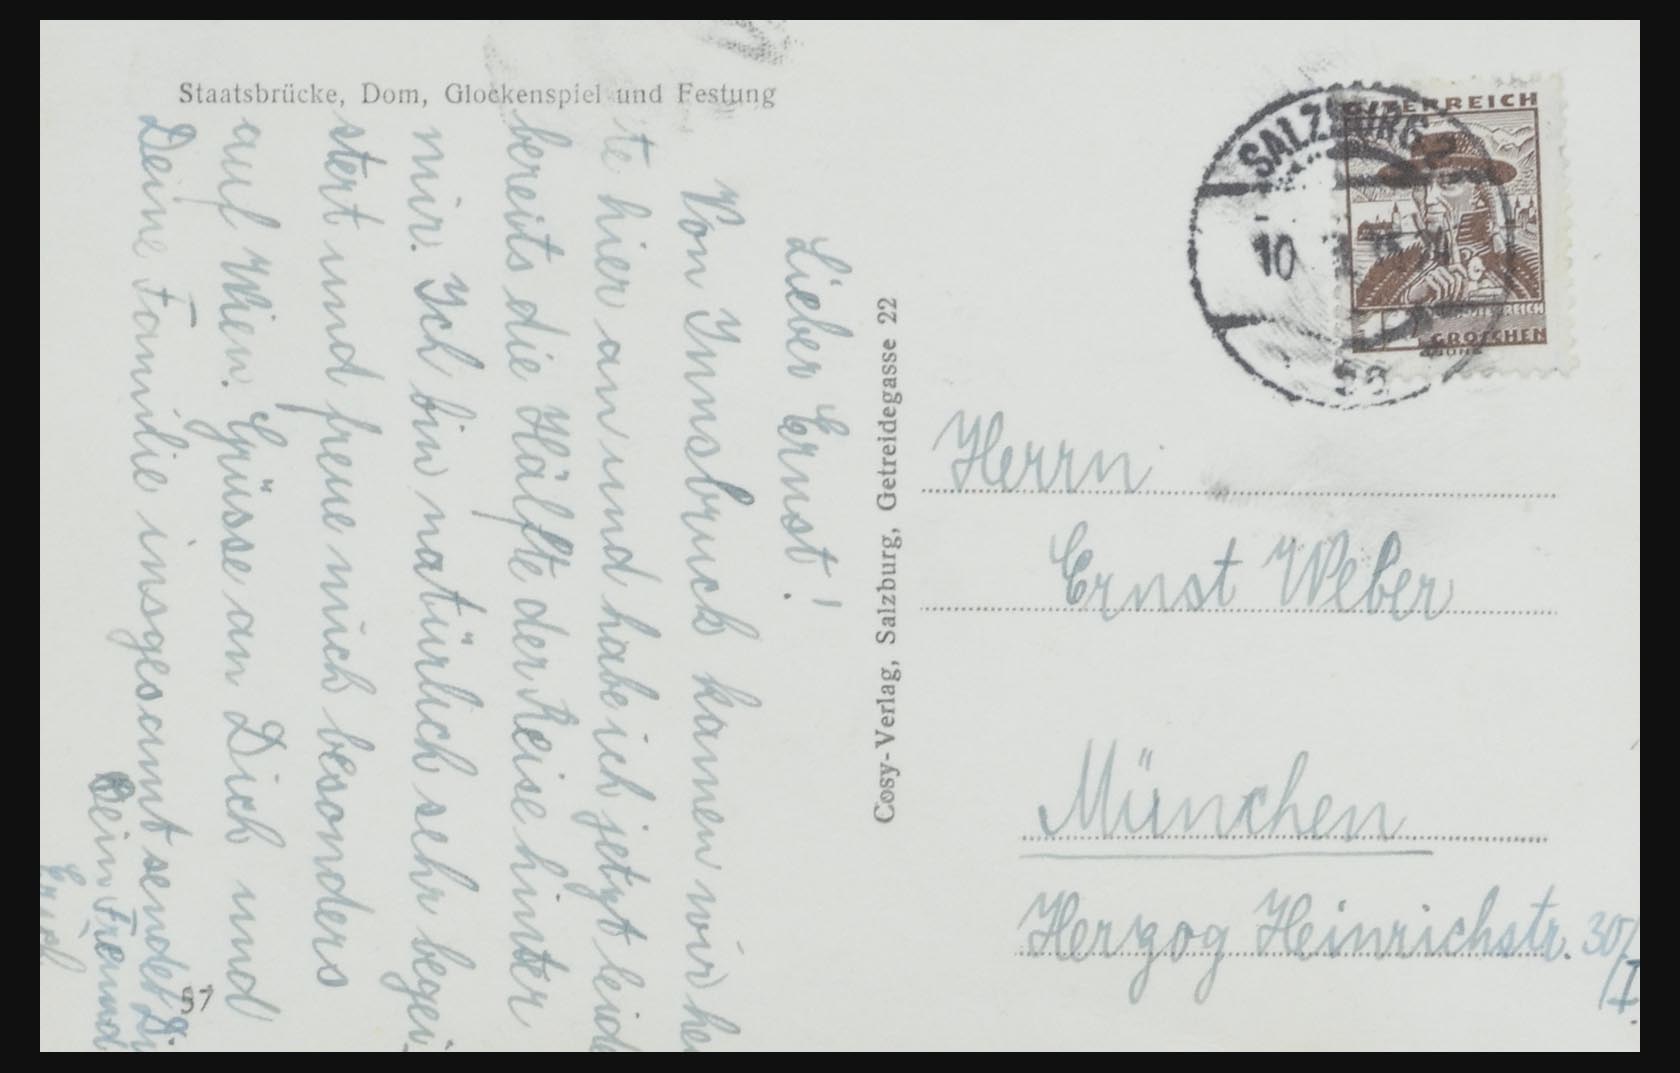 Staatsbrücke, Dom, Glockenspiel und Festung
Lieber Ernst!
Von Innsbruck kamen wir heu
te hier an und habe ich jetzt leider
bereits die Hälfte der Reise hinter
mir. Ich bin natürlich sehr begei
stert und freue mich besonders
auf Wien. Grüsse an Dich und
Deine Familie insgesamt sendet Dir
Dein Freund
Erich
57
Cosy-Verlag, Salzburg, Getreidegasse 22
SALZBURG 2
10
ÖSTERREICH
GROSCHEN
Herrn
Ernst Weber
München
Herzog Heinrichstr. 30/
/I.